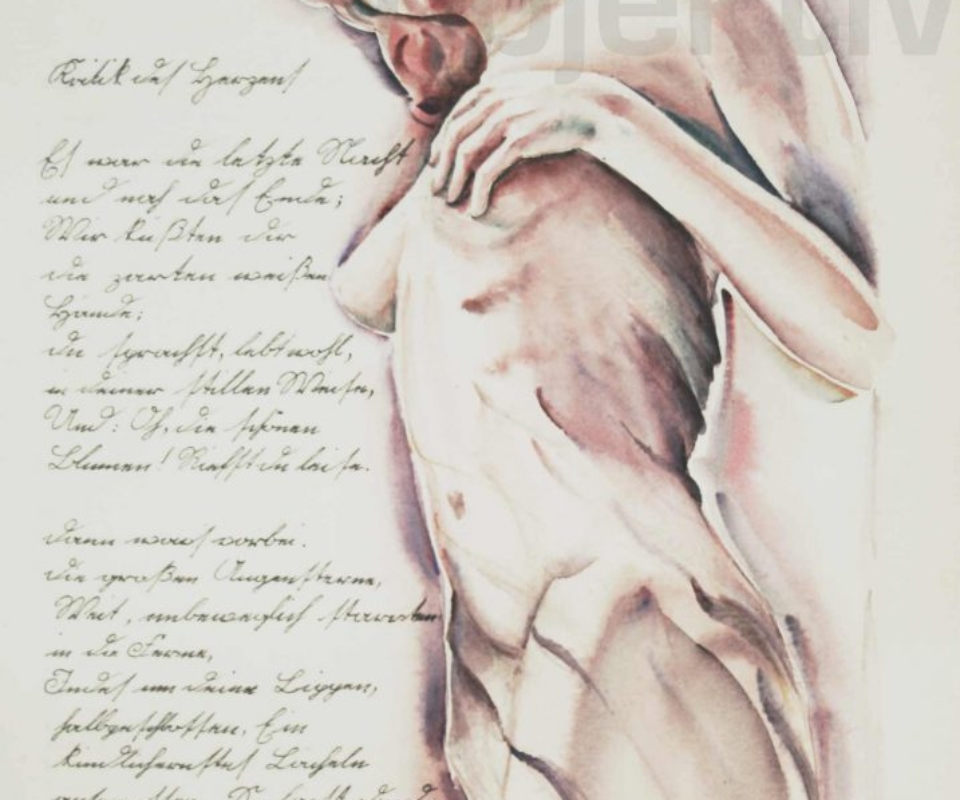 Kritik des Herzens
Es war die letzte Nacht
und nah das Ende;
Wir küßten dir
die zarten weißen
Hände;
du sprachst, lebt wohl,
in deiner stillen Weise,
Und: Oh, die schönen
Blumen! Riefst du leise.
dann wars vorbei.
die großen Augensterne,
Weit, unbeweglich starrten
in die Ferne,
Indes um deine Lippen,
halbgeschlossen, Ein
kindlichernstes Lächeln